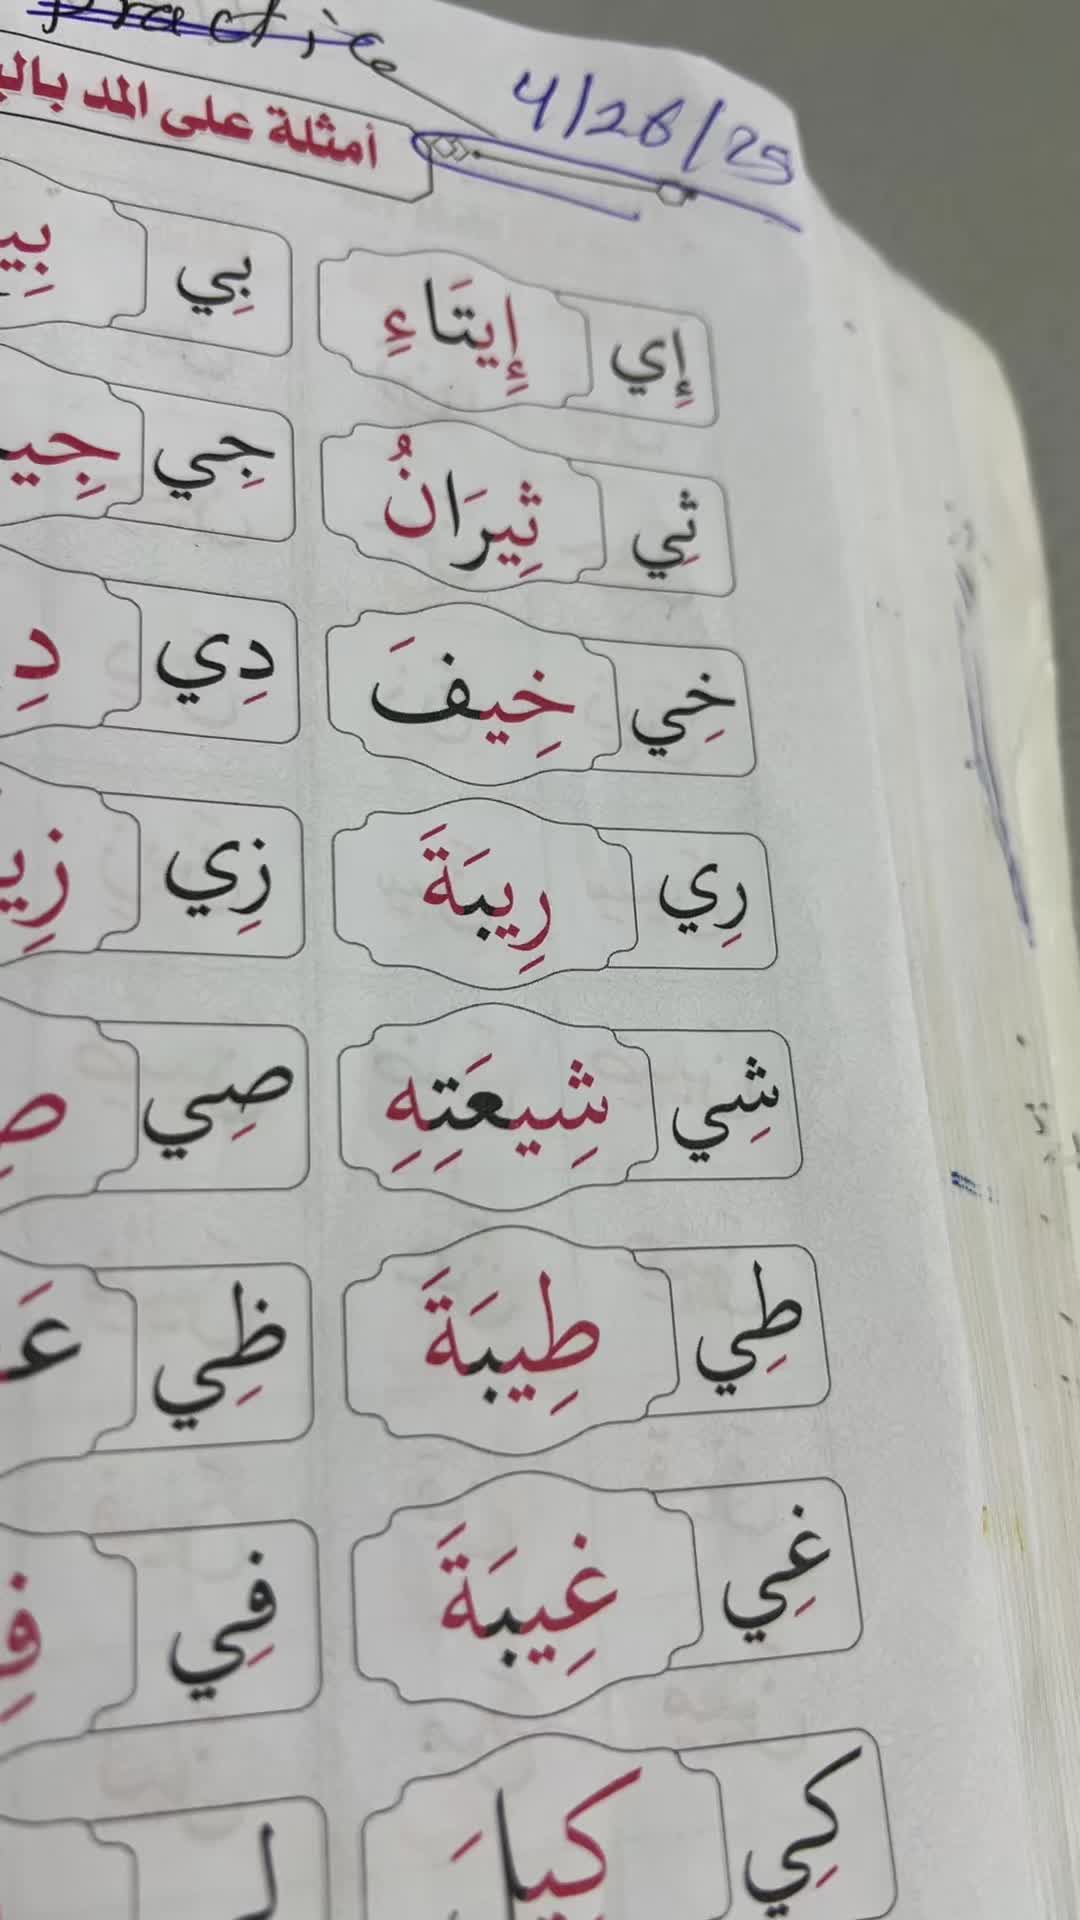 practice
4/28/25
أمثلة على المد
إِي إِيتَاءِ بِي
ثِي ثِيرَانُ جِي
خِي خِيفَ دِي
رِي رِيبَةَ زِي
شِي شِيعَتِهِ صِي
طِي طِيبَةَ ظِي
غِي غِيبَةَ فِي
كِي كِيلَ